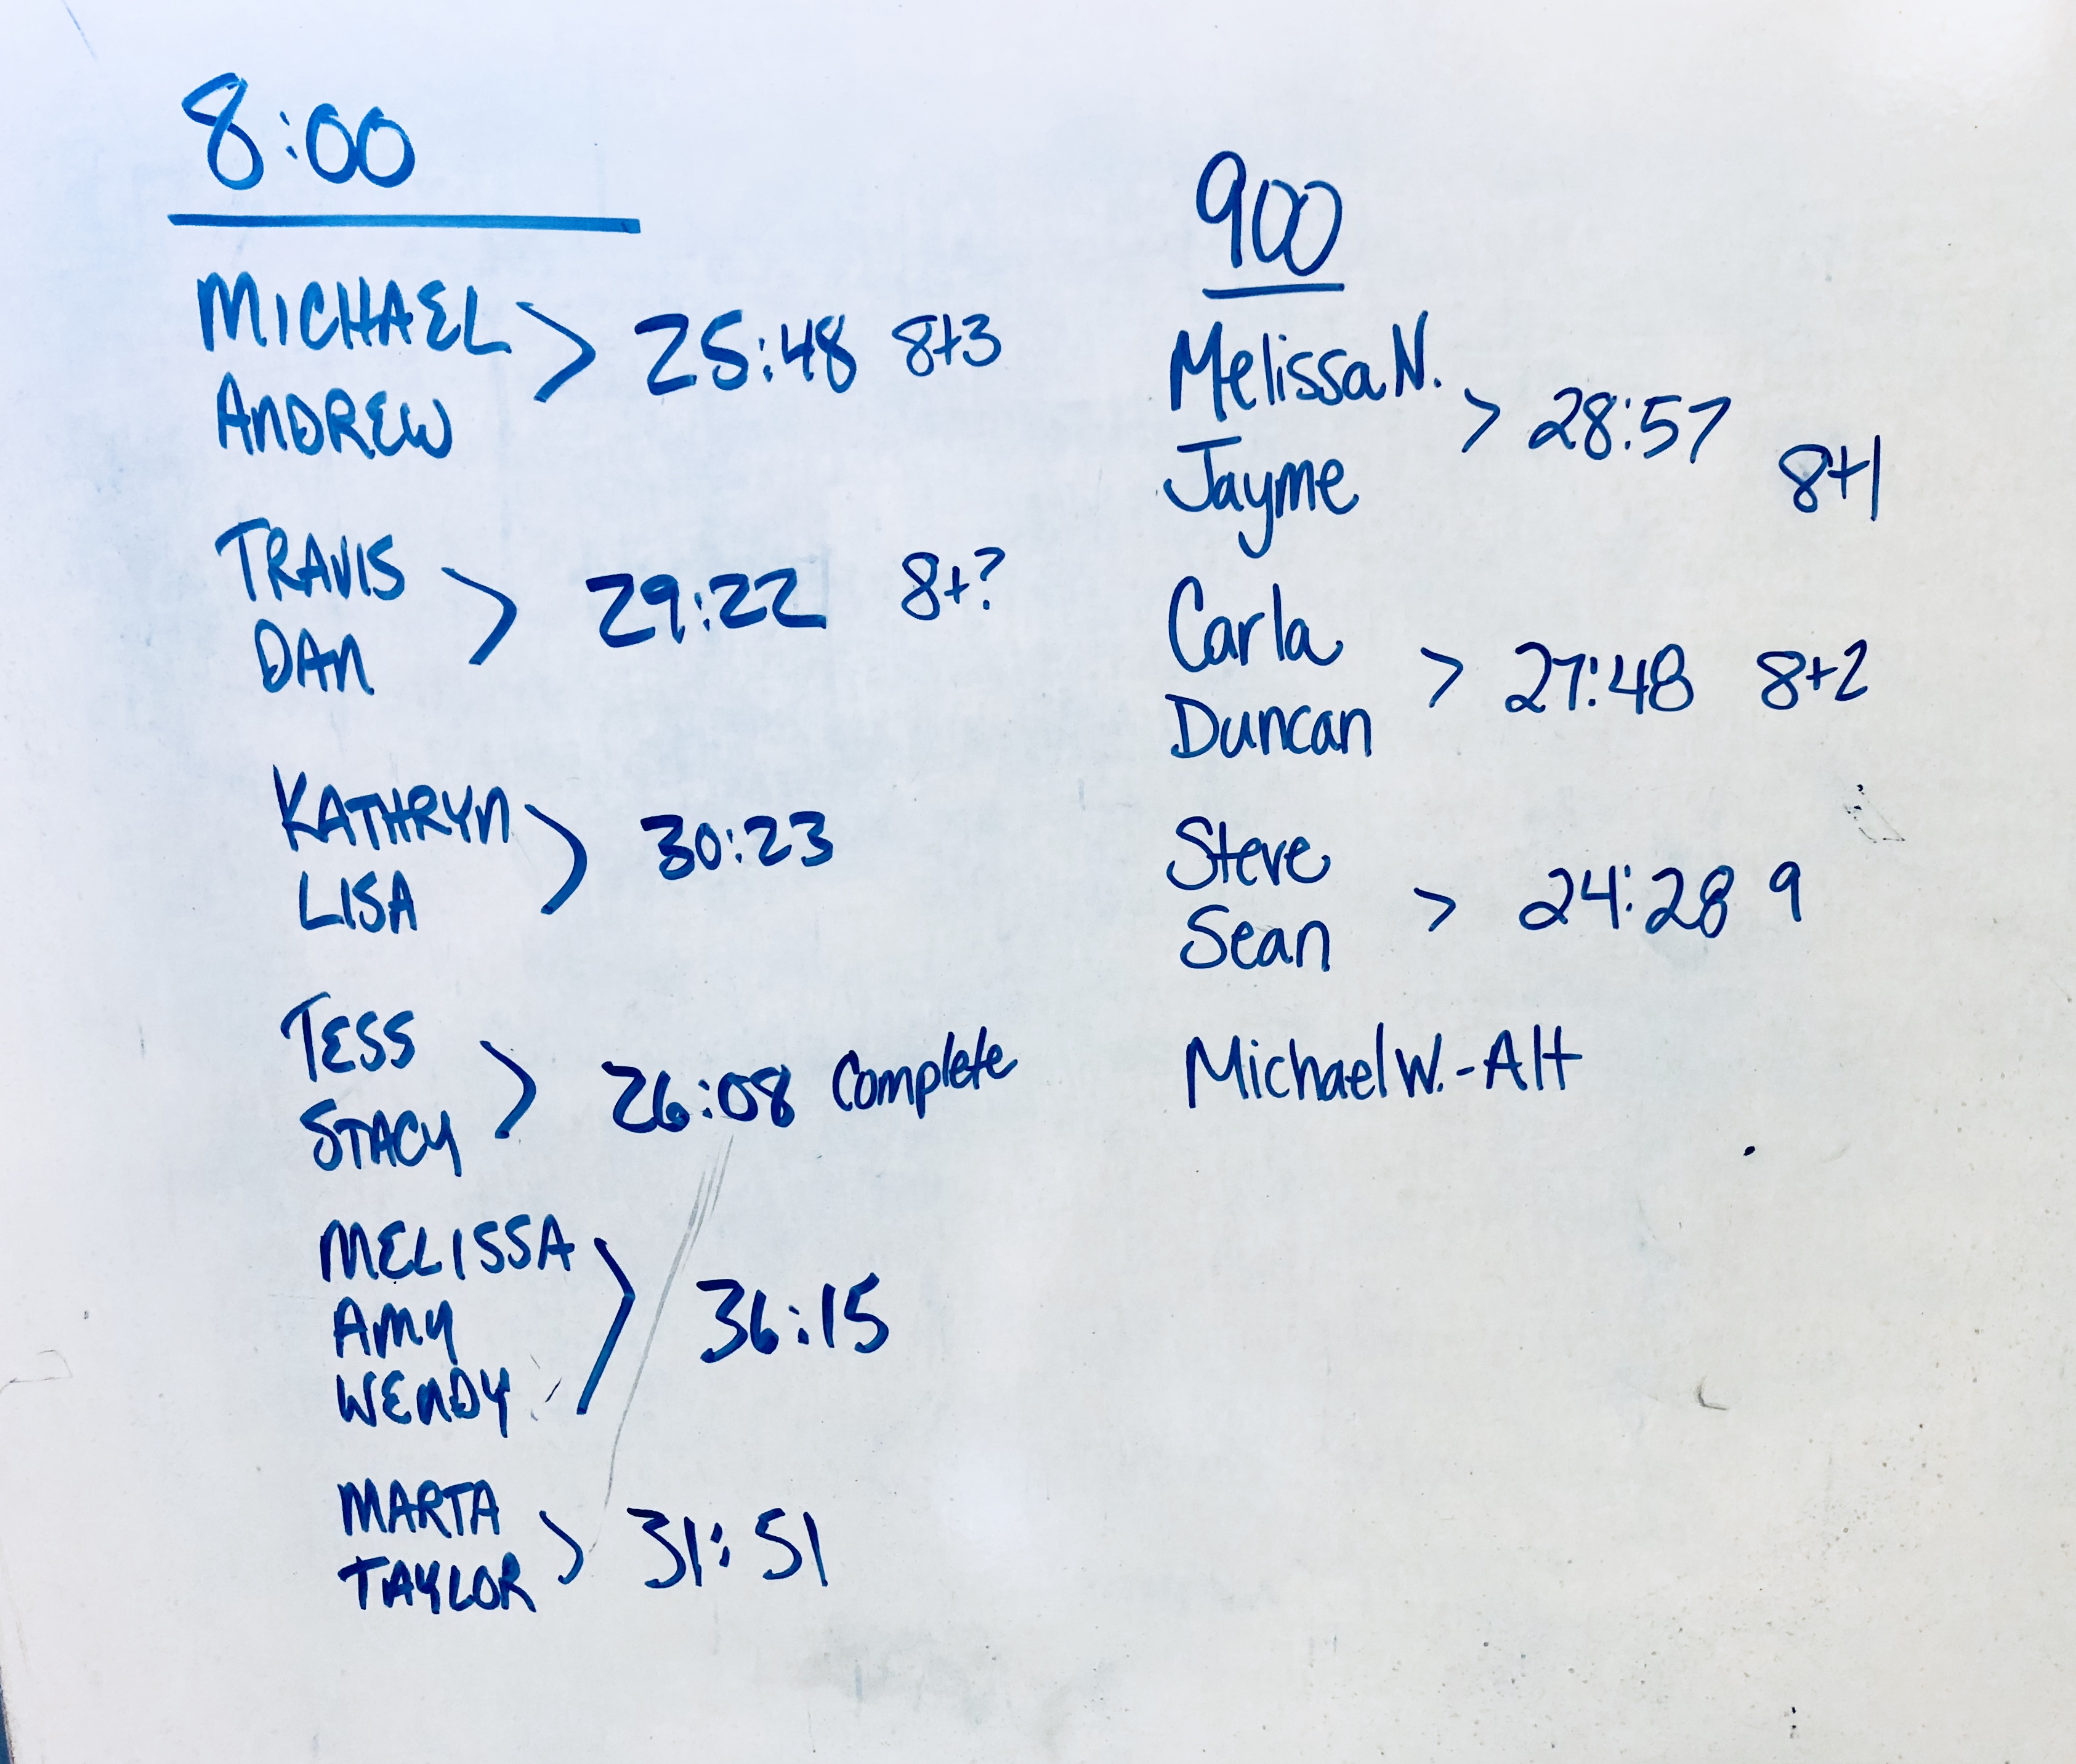 8:00
MICHAEL
ANDREW > 25:48 8+3
TRAVIS
DAN > 29:22 8+?
KATHRYN
LISA > 30:23
TESS
STACY > 26:08 Complete
MELISSA
AMY > 36:15
WENDY
MARTA
TAYLOR > 31:51
900
Melissa N.
Jayme > 28:57 8+1
Carla
Duncan > 27:48 8+2
Steve
Sean > 24:28 9
Michael W. - Alt